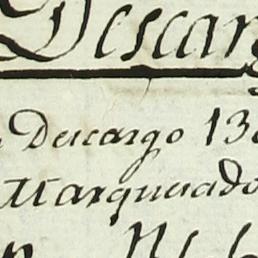 Descarg
Descargo 13
Marquesado